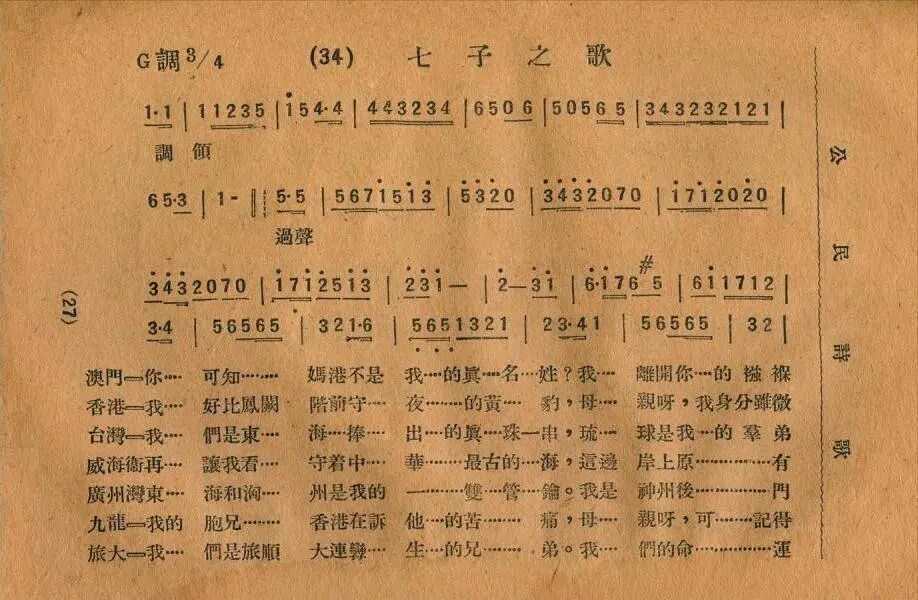 G調3/4 (34) 七子之歌
1·1 | 11235 | 154·4 | 443234 | 6506 | 50565 | 343232121
調領
65·3 | 1- || 5·5 | 5671513 | 5320 | 3432070 | 1712020
過聲
3432070 | 1712513 | 231— | 2—31 | 6·176#5 | 611712
3·4 | 56565 | 321·6 | 5651321 | 23·41 | 56565 | 32 |
澳門═你…… 可知…… 媽港不是 我…的眞…名…姓?我… 離開你…的 襁 褓
香港═我… 好比鳳闕 階前守… 夜……的黃… 豹,母… 親呀,我身分雖微
台灣═我… 們是東… 海…捧… 出…的眞…珠一串,琉… 球是我…的 羣 弟
威海衞再… 讓我看… 守着中… 華……最古的…海,這邊 岸上原……有
廣州灣東… 海和洶… 州是我的 一……雙…管…鑰。我是 神州後……門
九龍═我的 胞兄…… 香港在訴 他…的苦… 痛,母… 親呀,可…記得
旅大═我… 們是旅順 大連孿… 生…的兄… 弟。我… 們的命……運
(27)
公民詩歌